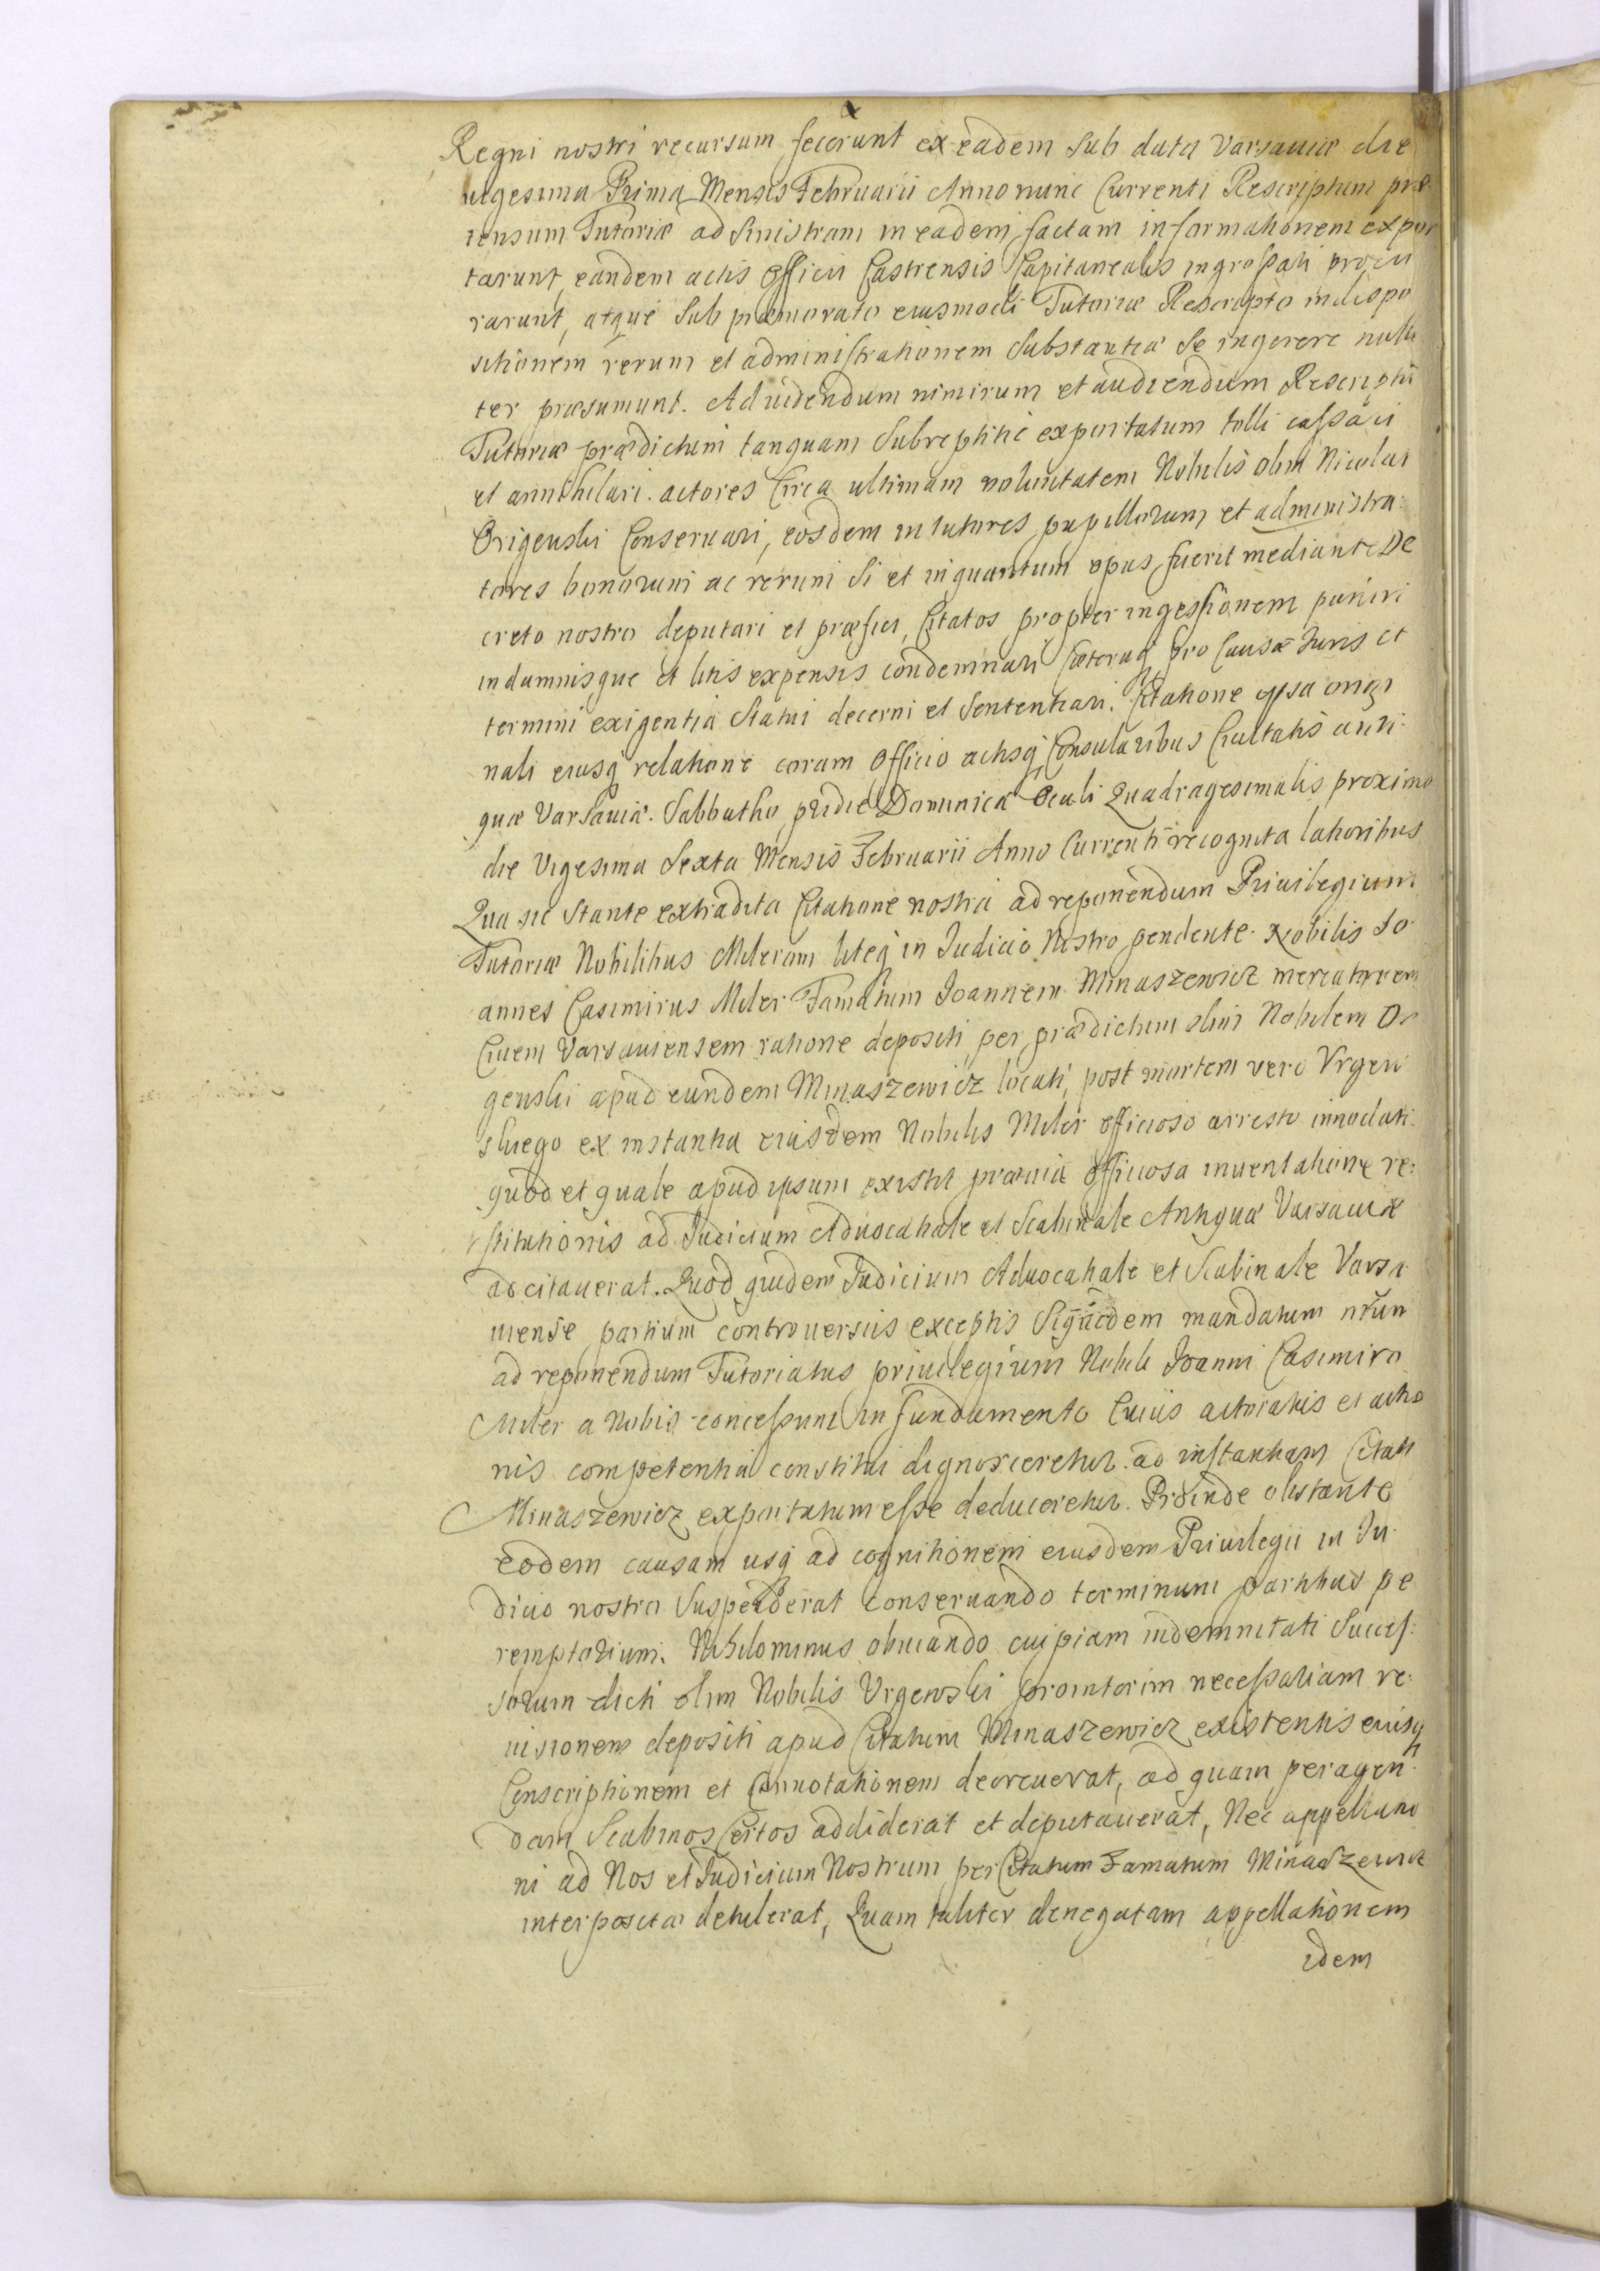 Regni nostri recursum fecerunt ex eadem sub data Varsaviæ die
vigesima Prima Mensis Februarii Anno nunc Currenti Rescriptum præ
tensum Tutoriæ ad sinistram in eadem factam informationem expor
tarunt, eandem actis Officii Castrensis Capitanealis ingrossari procu
rarunt, atque sub præmorato eiusmodi Tutoriæ Rescripto in dispo
sitionem rerum et administrationem substantiæ se ingerere nulli
ter præsumunt. Ad videndum nimirum et audiendum Rescriptū
Tutoriæ prædictum tanquam subreptitie exportatum tolli cassari
et annihilari. actores Circa ultimam voluntatem Nobilis olim Nicolai
Origenski Conservari, eosdem in tutores pupillorum et administra:
tores bonorum ac rerum si et in quantum opus fuerit mediante De
creto nostro deputari et præfici, Citatos propter ingessionem puniri
in damnisque et litis expensis condemnari Cæteraq pro Causæ Iuris et
termini exigentia statui decerni et sententiari. Citatione ipsa origi
nali eiusq relatione coram Officio actisq Consularibus Civitatis anti:
quæ Varsaviæ. Sabbatho, pridie Dominicæ Oculi Quadragesimalis proximo
die Vigesima Sexta Mensis Februarii Anno Currenti recognita latoribus
Qua sic stante extradita Citatione nostra ad reponendum Privilegium
Tutoriæ Nobilibus Milerom liteq in Iudicio Nostro pendente. Nobilis Io
annes Casimirus Miler Famatum Ioannem Minaszewicz mercatorem
Civem Varsaviensem ratione depositi per prædictum olim Nobilem Or
genski apud eundem Minaszewicz locati, post mortem vero Vrgen
skiego ex instantia eiusdem Nobilis Miler officioso arresto innodati
quod et quale apud ipsum existit prævia officiosa inventatione re:
stitutionis ad Iudicium Advocatiale et Scabinale Antiquæ Varsaviæ
adcitaverat. Quod quidem Iudicium Advocatiale et Scabinale Varsa
viense partium controversiis exceptis Siquidem mandatum nr̄um
ad reponendum Tutoriatus privilegium Nobili Ioanni Casimiro
Miler a Nobis concessum in fundamento Cuius actoratis et actio
nis competentia constitui dignosceretur. ad instantiam Citati
Minaszewicz exportatum esse deduceretur. Proinde obstante
eodem causam usq ad cognitionem eiusdem Privilegii in Iu
dicio nostro suspenderat conservando terminum partibus pe
remptorium. Nihilominus obviando cuipiam indemnitati Succes:
sorum dicti olim Nobilis Vrgenski prointerim necessariam re:
visionem depositi apud Citatum Minaszewicz existentis eiusq
Conscriptionem et Connotationem decreverat, ad quam peragen
dam Scabinos Certos addiderat et deputaverat, Nec appellatio
ni ad Nos et Iudicium Nostrum per Citatum Famatum Minaszewicz
interpositæ detulerat, Quam taliter denegatam appellationem
idem